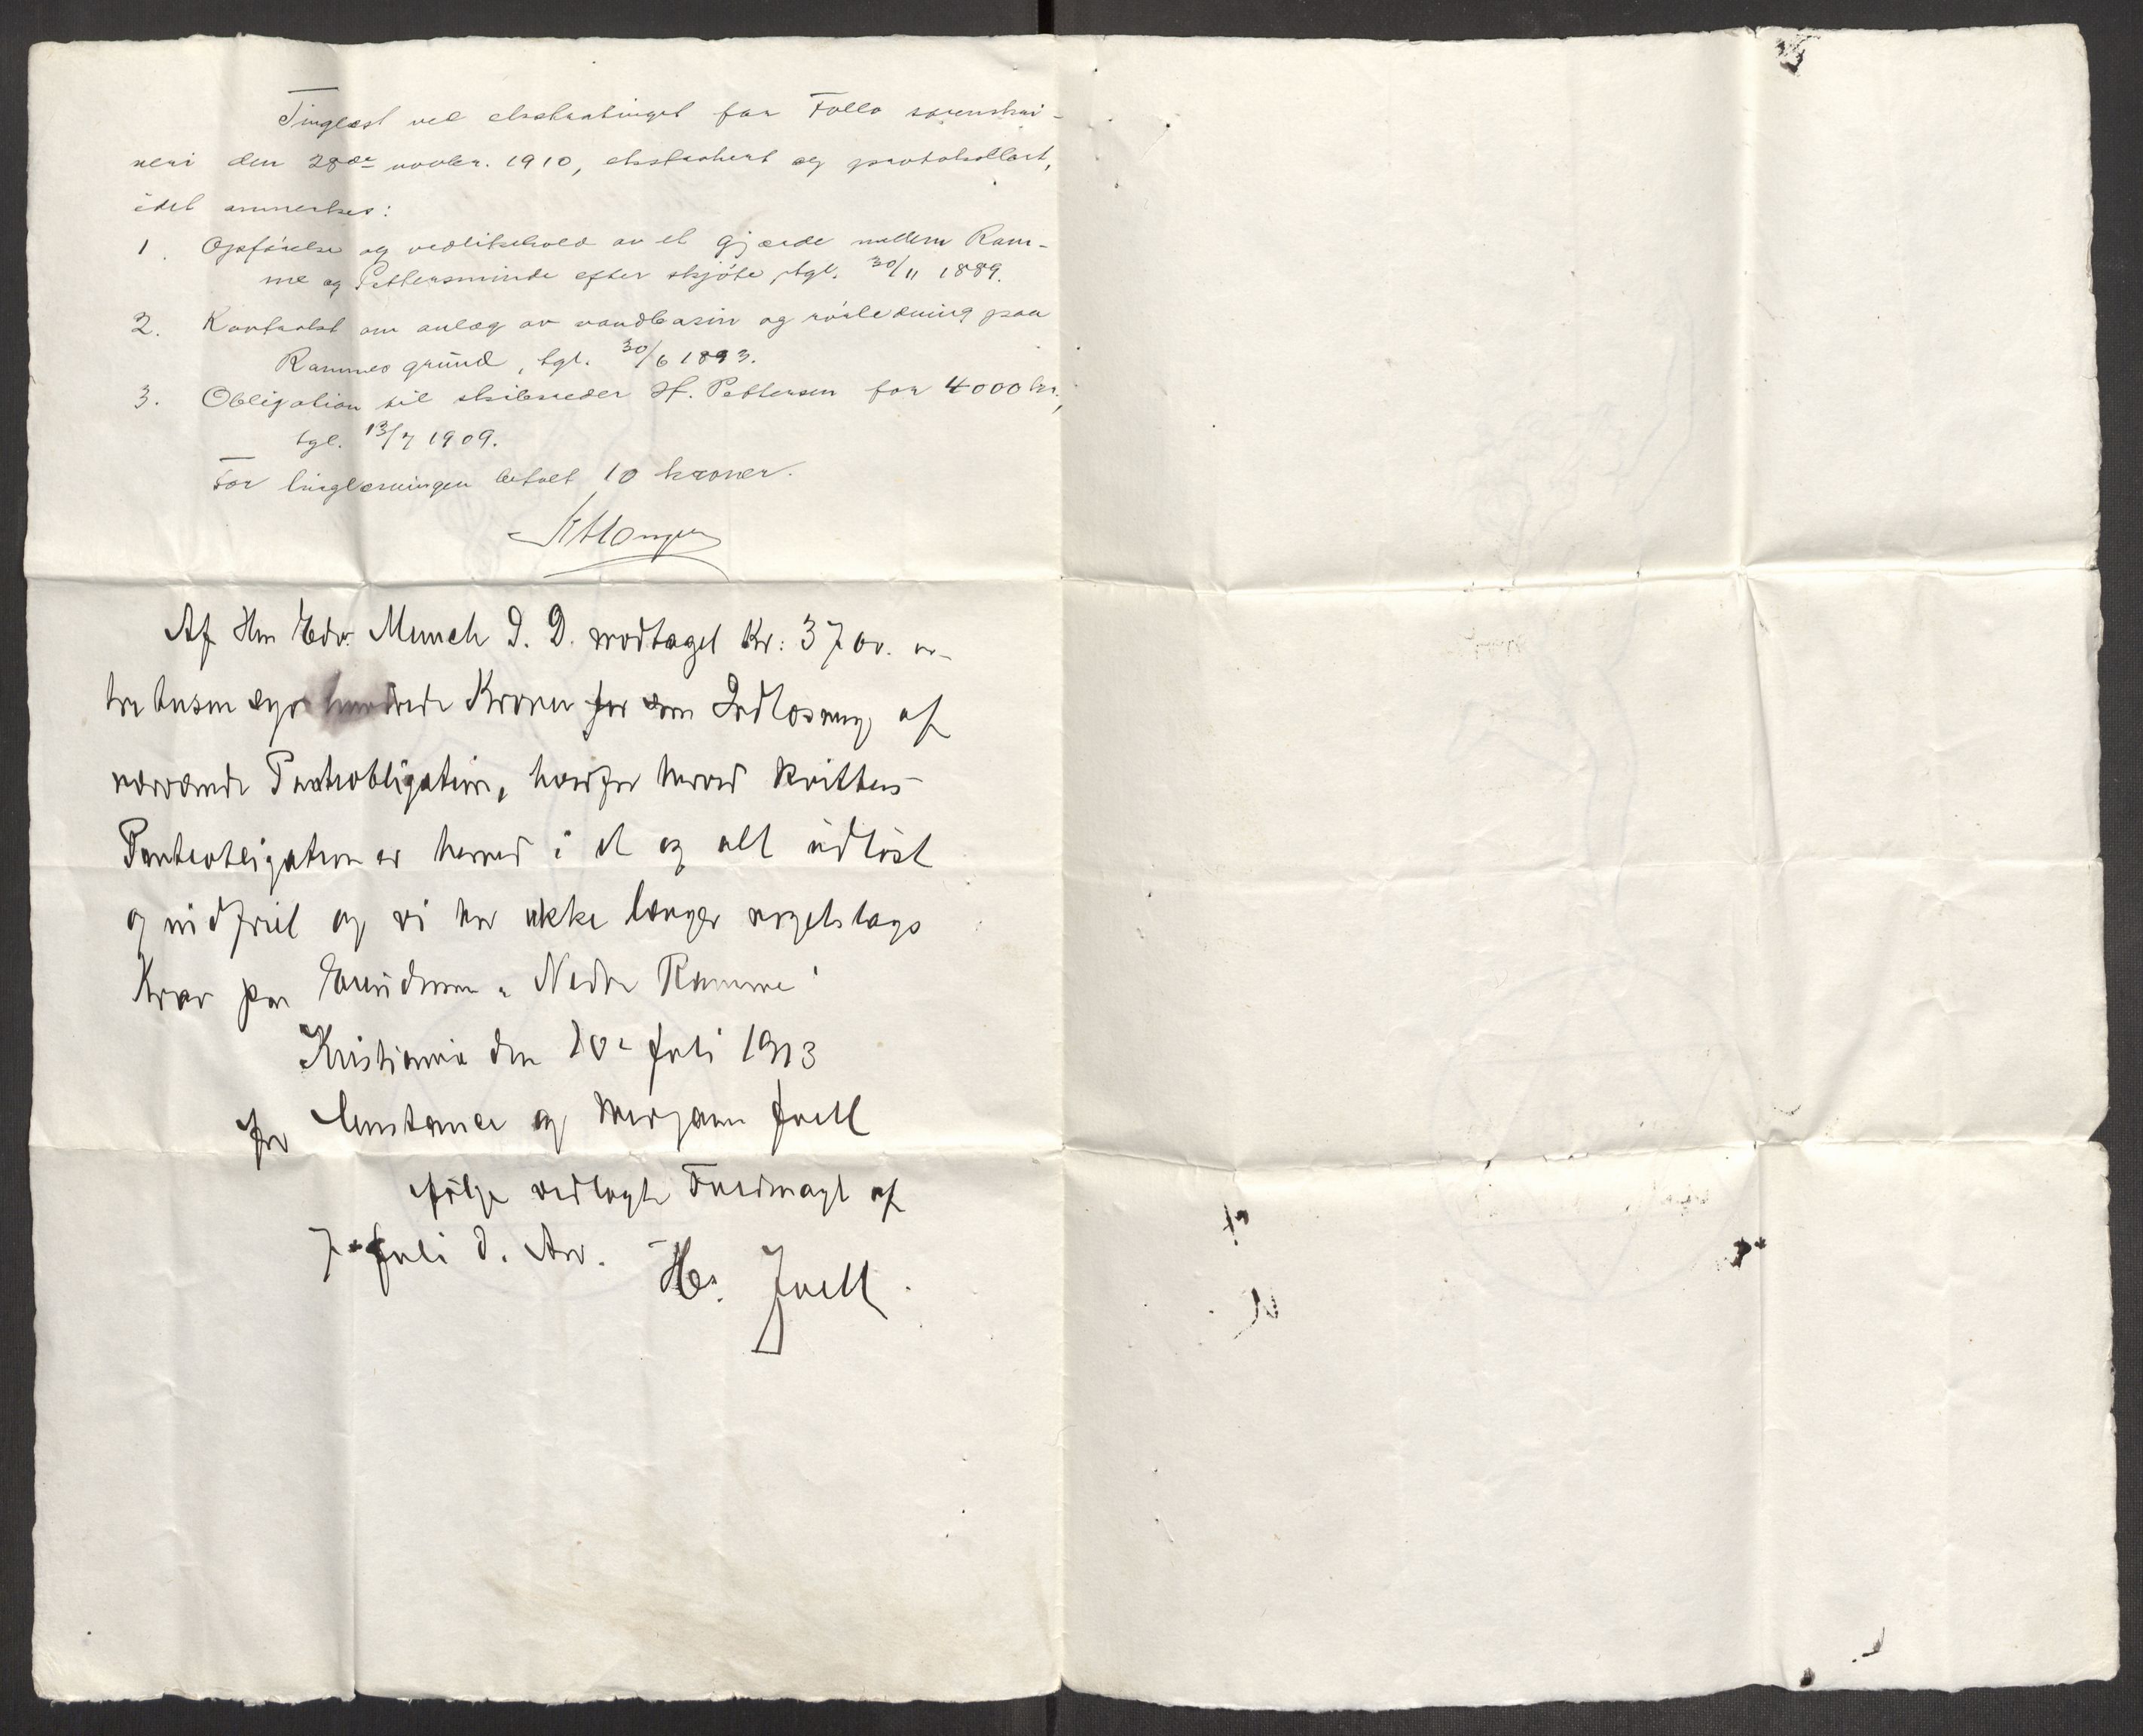 Tinglæst ved ekstratinget for Follo sorenskri-
veri den 28de novbr. 1910, ekstrahert og protokollert,
idet anmerkes:
1. Opførelse og vedlikehold av et gjærde mellem Ram-
me og Pettersminde efter skjøte, tgl. 30/11 1889.
2. Kontrakt om anlæg av vandbasin og rørledning paa
Rammes grund, tgl. 30/6 1893.
3. Obligation til skibsreder H. Pettersen for 4000 kr.,
tgl. 13/7 1909.
For tinglæsningen betalt 10 kroner.
Af Hrr Edv. Munch D. D. modtaget Kr: 3700.
tre tusen syv hundrede Kroner for Indløsning af
nærværende Panteobligation, hvorfor herved kvitteres
Panteobligationen er herved i et og alt indløst
og indfriet og vi har ikke længer nogetslags
Krav paa Eiendommen "Nedre Ramme"
Kristiania den 10de Juli 1913
for Constance og Juell
ifølge vedlagte Fuldmagt af
7de Juli d. Aar. Hs. Juell.